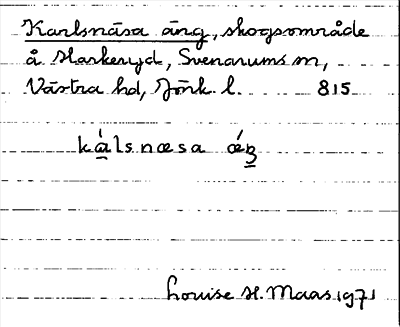 Karlsnäsa äng, skogsområde
å Harkeryd, Svenarums sn,
Västra hd, Jönk. l. 815
ká̱lsnæsa ǽŋ̱
Louise H. Maas 1971